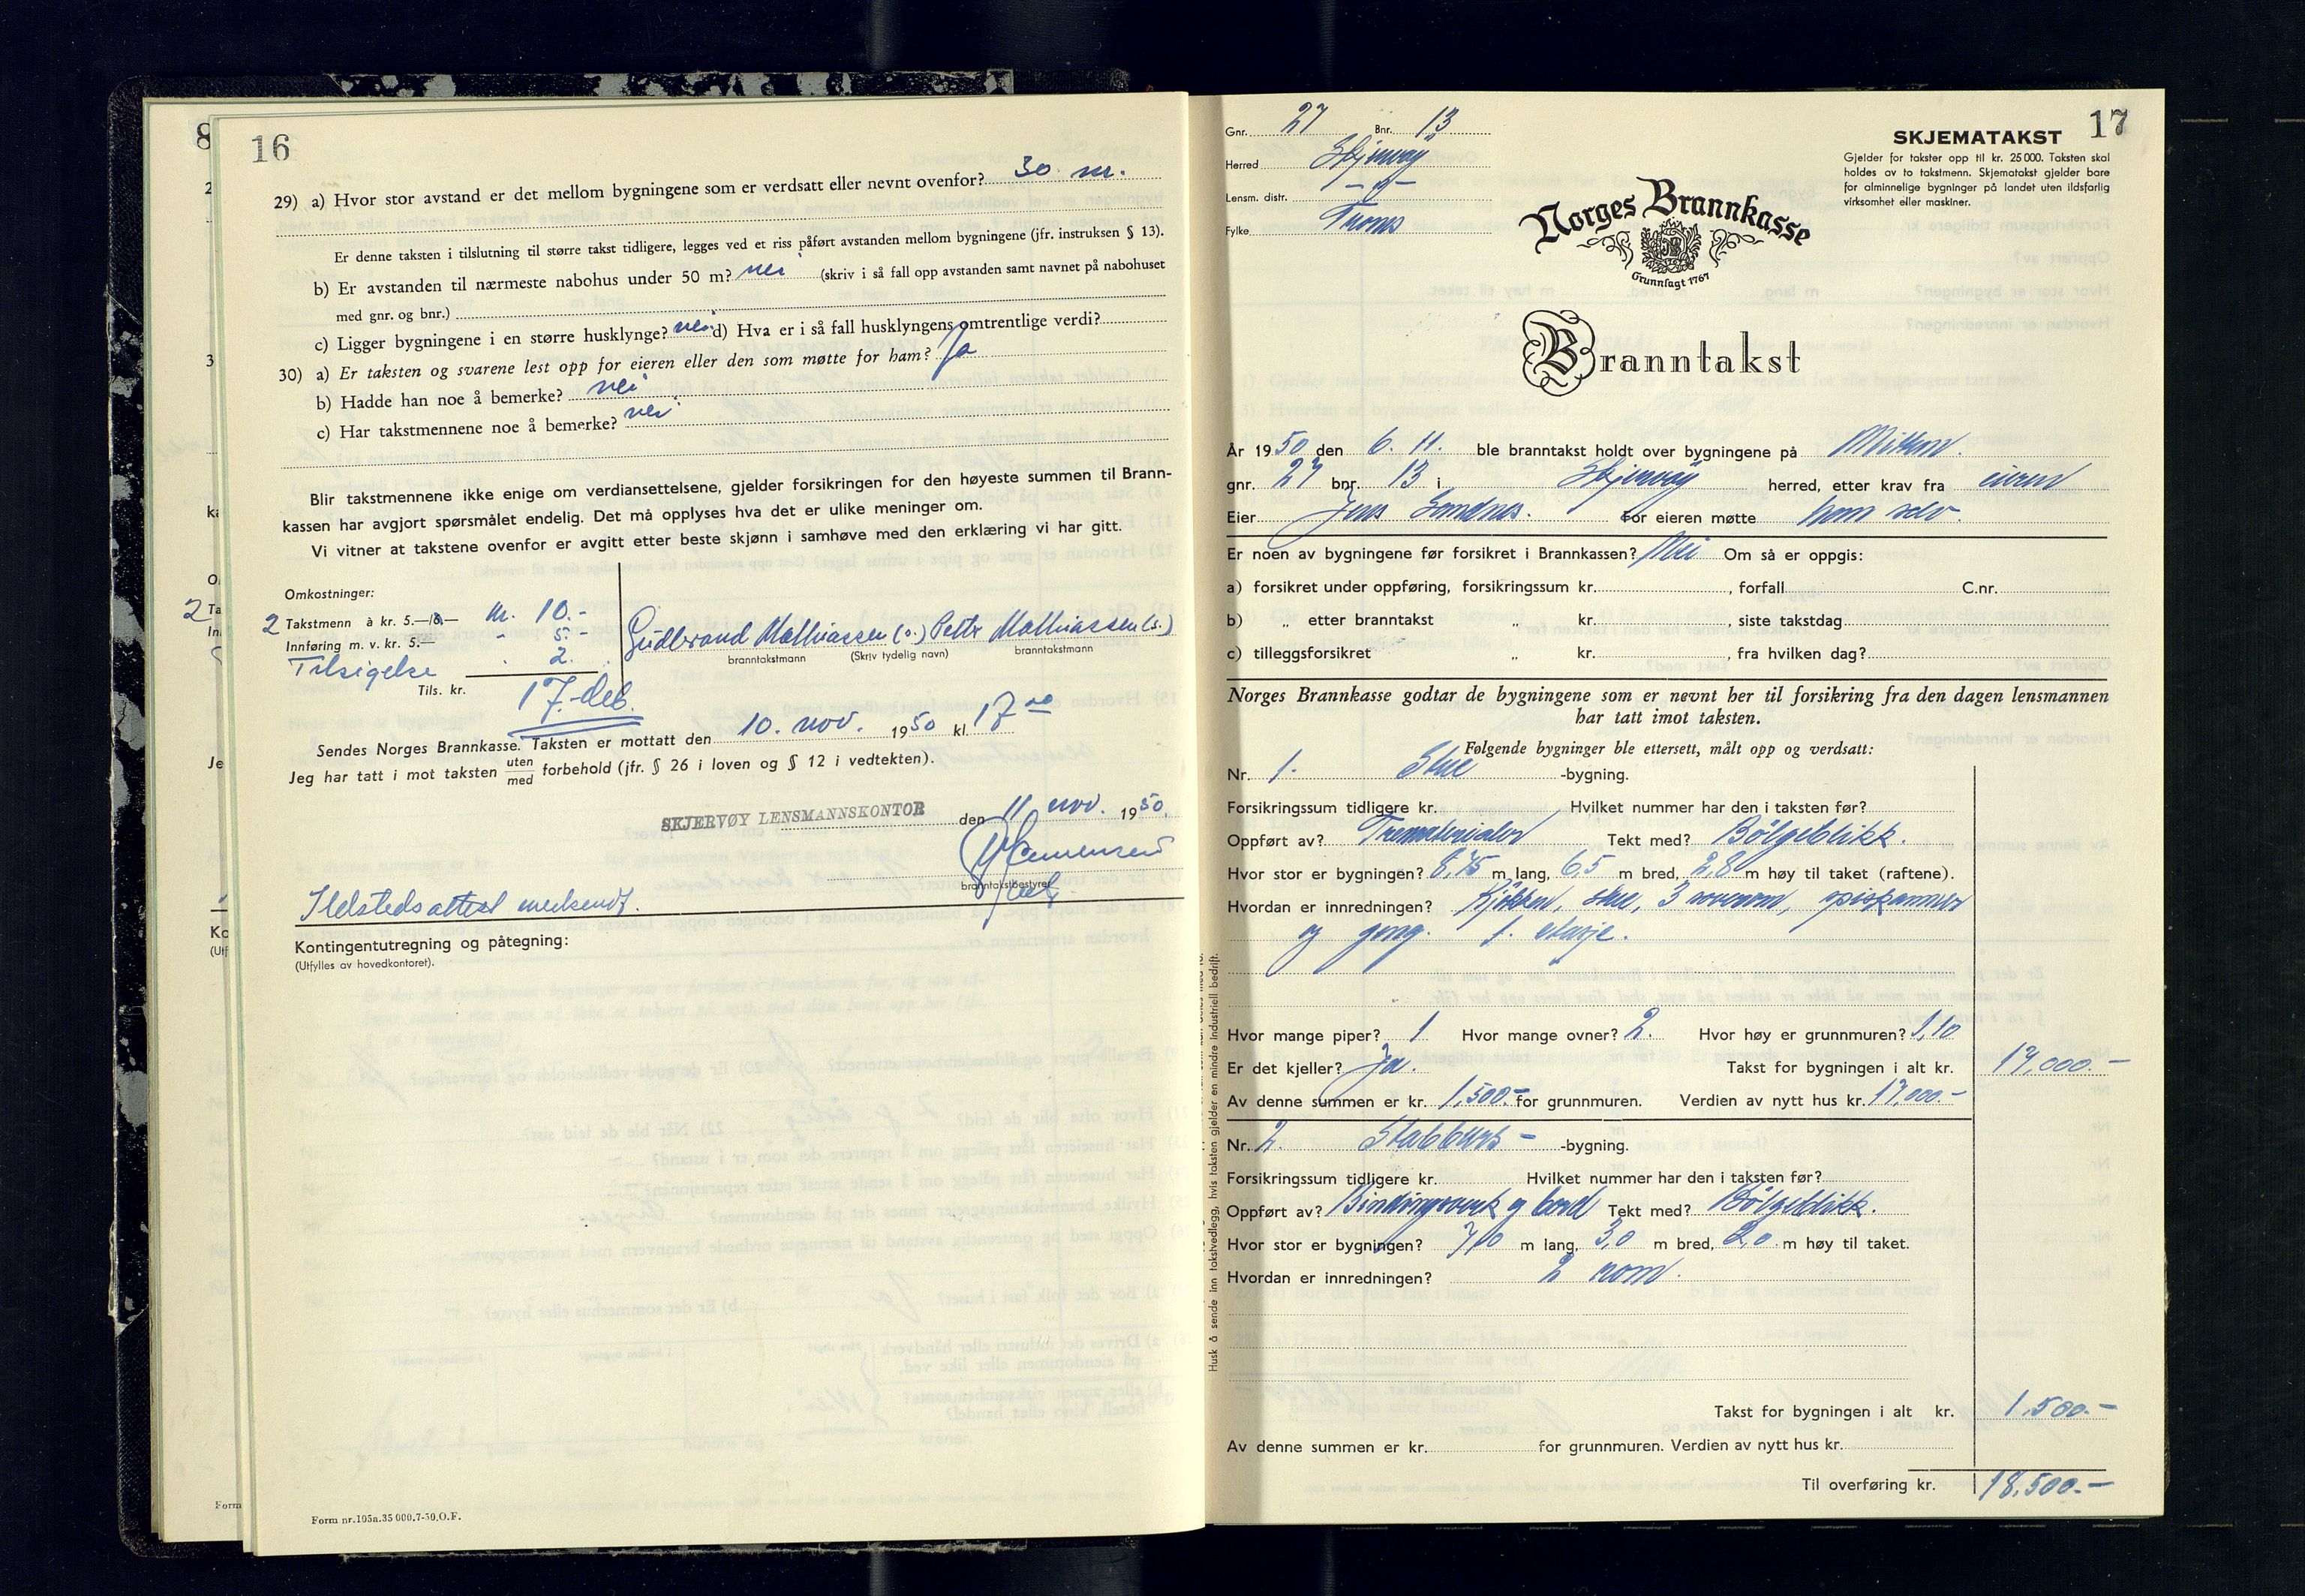 16
29) a) Hvor stor avstand er det mellom bygningene som er verdsatt eller nevnt ovenfor? 30 m.
Er denne taksten i tilslutning til større takst tidligere, legges ved et riss påført avstanden mellom bygningene (jfr. instruksen § 13).
b) Er avstanden til nærmeste nabohus under 50 m? nei (skriv i så fall opp avstanden samt navnet på nabohuset
med gnr. og bnr.)
c) Ligger bygningene i en større husklynge? nei d) Hva er i så fall husklyngens omtrentlige verdi?
30) a) Er taksten og svarene lest opp for eieren eller den som møtte for ham? Ja
b) Hadde han noe å bemerke? nei
c) Har takstmennene noe å bemerke? nei
Blir takstmennene ikke enige om verdiansettelsene, gjelder forsikringen for den høyeste summen til Brann-
kassen har avgjort spørsmålet endelig. Det må opplyses hva det er ulike meninger om.
Vi vitner at takstene ovenfor er avgitt etter beste skjønn i samhøve med den erklæring vi har gitt.
Omkostninger:
2 Takstmenn à kr. 5.— kr. 10.-
Innføring m. v. kr. 5.— - 5.-
Tilsigelse 2.
Tils. kr. 17.- deb.
Gudbrand Mathiassen (s.) Petter Mathiassen (s.)
branntakstmann (Skriv tydelig navn) branntakstmann
Sendes Norges Brannkasse. Taksten er mottatt den 10. nov. 1950 kl. 17 00
Jeg har tatt i mot taksten uten/med forbehold (jfr. § 26 i loven og § 12 i vedtekten).
SKJERVØY LENSMANNSKONTOR den 11 nov. 1950.
branntakstbestyrer
Ildstedsattest medsendt.
Kontingentutregning og påtegning:
(Utfylles av hovedkontoret).
Form nr.105a.35 000.7-50.O.F.
17
Gnr. 27 Bnr. 13
Herred Skjervøy
Lensm. distr. -"-
Fylke Troms
SKJEMATAKST
Gjelder for takster opp til kr. 25 000. Taksten skal
holdes av to takstmenn. Skjematakst gjelder bare
for alminnelige bygninger på landet uten ildsfarlig
virksomhet eller maskiner.
Norges Brannkasse
Grunnlagt 1767
Branntakst
År 1950 den 6. 11. ble branntakst holdt over bygningene på
gnr. 27 bnr. 13 i Skjervøy herred, etter krav fra eieren
Eier Jens Sandnes. For eieren møtte han selv.
Er noen av bygningene før forsikret i Brannkassen? Nei Om så er oppgis:
a) forsikret under oppføring, forsikringssum kr. , forfall C.nr.
b) „ etter branntakst „ kr. , siste takstdag
c) tilleggsforsikret „ kr. , fra hvilken dag?
Norges Brannkasse godtar de bygningene som er nevnt her til forsikring fra den dagen lensmannen
har tatt imot taksten.
Følgende bygninger ble ettersett, målt opp og verdsatt:
Nr. 1. Stue -bygning.
Forsikringssum tidligere kr. Hvilket nummer har den i taksten før?
Oppført av? Trematerialer Tekt med? Bølgeblikk.
Hvor stor er bygningen? 8,75 m lang, 6,5 m bred, 2,80 m høy til taket (raftene).
Hvordan er innredningen? Kjøkken, stue, 3 soverom, spiskammer
og gang. 1. etasje.
Hvor mange piper? 1 Hvor mange ovner? 2. Hvor høy er grunnmuren? 1,10
Er det kjeller? Ja. Takst for bygningen i alt kr. 17.000.-
Av denne summen er kr. 1.500.- for grunnmuren. Verdien av nytt hus kr. 17.000.-
Nr. 2. Stabburs- -bygning.
Forsikringssum tidligere kr. Hvilket nummer har den i taksten før?
Oppført av? Bindingsverk og bord Tekt med? Bølgeblikk.
Hvor stor er bygningen? m lang, 3,0 m bred, 2,0 m høy til taket.
Hvordan er innredningen? 2 rom.
Takst for bygningen i alt kr. 1.500.-
Av denne summen er kr. for grunnmuren. Verdien av nytt hus kr.
Til overføring kr. 18.500.-